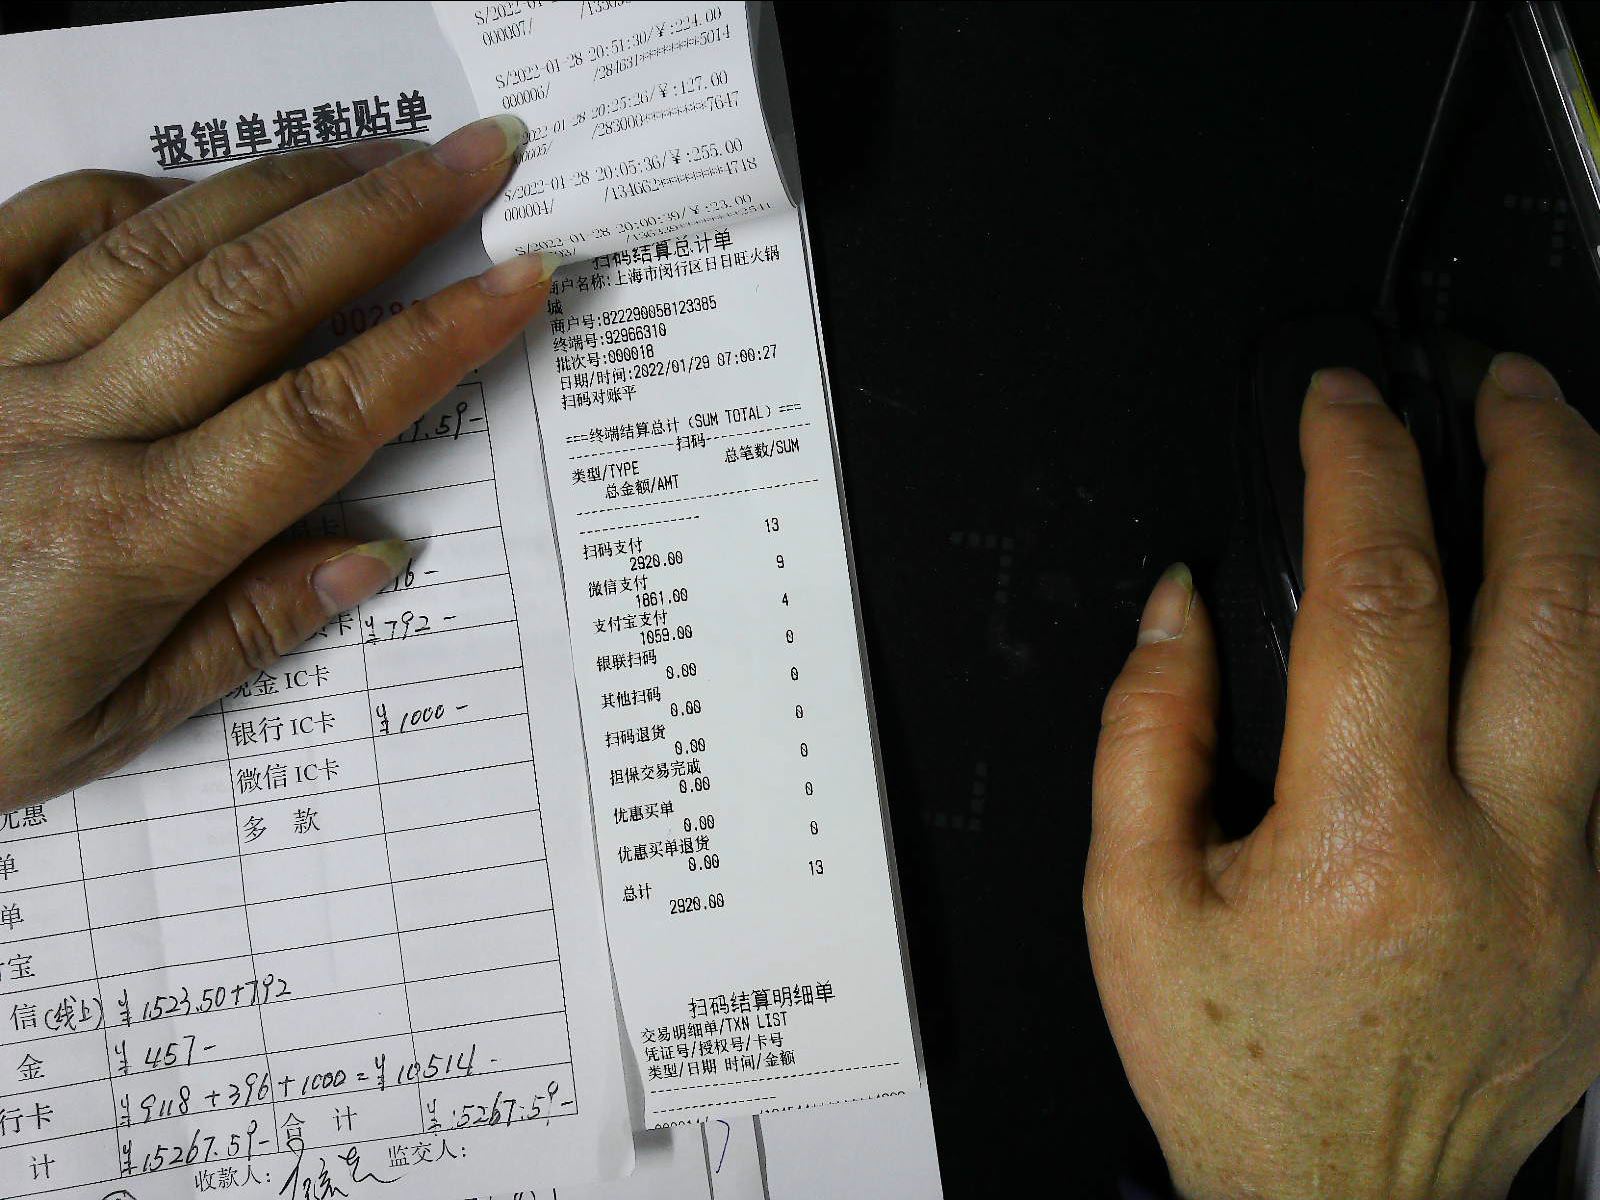 报销单据黏贴单
S/2022-01-28 20:51:30/¥:224.00
000007/
000006/ /284631********5014
2022-01-28 20:25:26/¥:127.00
/283000********7647
S/2022-01-28 20:05:36/¥:255.00
000004/ /134662********4718
S/2022-01-28 20:00:39/¥:23.00
扫码结算总计单
商户名称:上海市闵行区日日旺火锅
城
商户号:822290058123385
终端号:92966310
批次号:000018
日期/时间:2022/01/29 07:00:27
扫码对账平
===终端结算总计(SUM TOTAL)===
扫码
类型/TYPE 总笔数/SUM
总金额/AMT
扫码支付 13
2920.00
微信支付 9
1861.00
支付宝支付 4
1059.00
银联扫码 0
0.00
其他扫码 0
0.00
扫码退货 0
0.00
担保交易完成 0
0.00
优惠买单 0
0.00
优惠买单退货 0
0.00
总计 13
2920.00
扫码结算明细单
交易明细单/TXN LIST
凭证号/授权号/卡号
类型/日期 时间/金额
.59-
卡 ¥792-
现金IC卡
银行IC卡 ¥1000-
微信IC卡
惠 多 款
单
单
宝
信(线上) ¥1523.50+792
金 ¥457-
行卡 ¥9118+396+1000=¥10514-
计 ¥15267.59- 合 计 ¥15267.59-
收款人: 监交人: